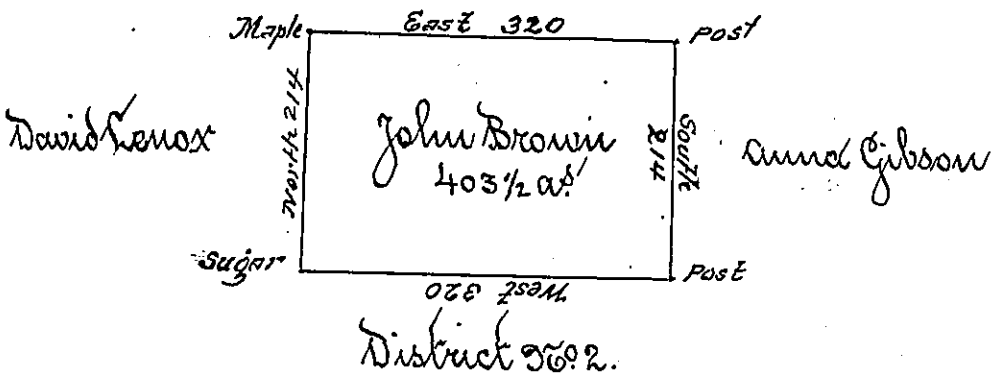 Maple East 320 Post
David Lenox
North 214
John Brown
403 1/2 as
South
214
Anna Gibson
Sugar
Post
West 320
District No. 2.